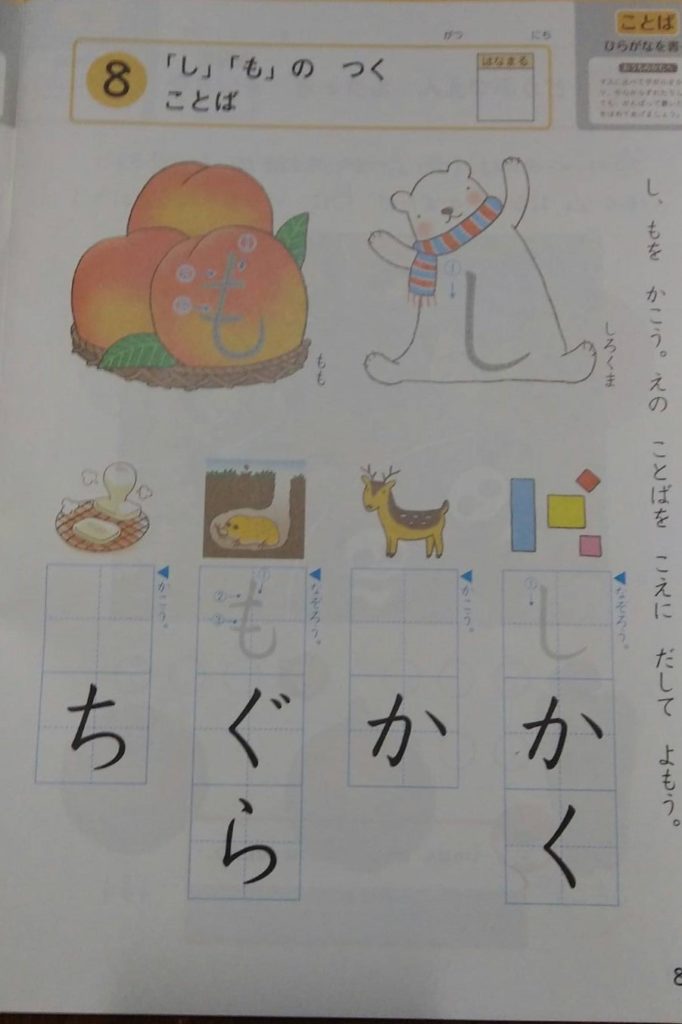 がつ にち
ことば
ひらがなを書
おうちのかたへ
8
「し」「も」の つく
ことば
はなまる
し、もを かこう。えの ことばを こえに だして よもう。
①
し
しろくま
も
もも
なぞろう。
①
しかく
かこう。
か
なぞろう。
①
②
③
もぐら
かこう。
ち
8